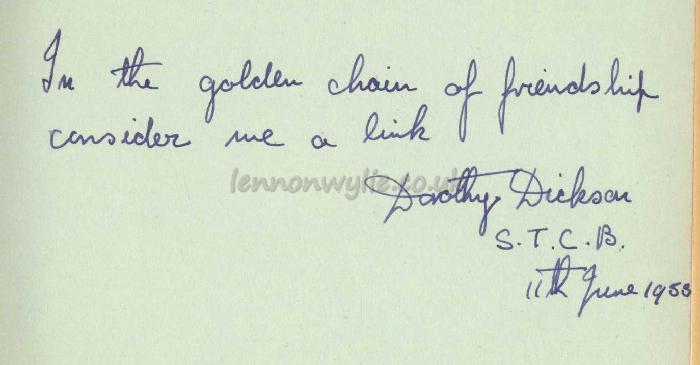 In the golden chain of friendship
consider me a link
lennonwylie.co.uk
Dorothy Dickson
S.T.C.B.
11th June 1953